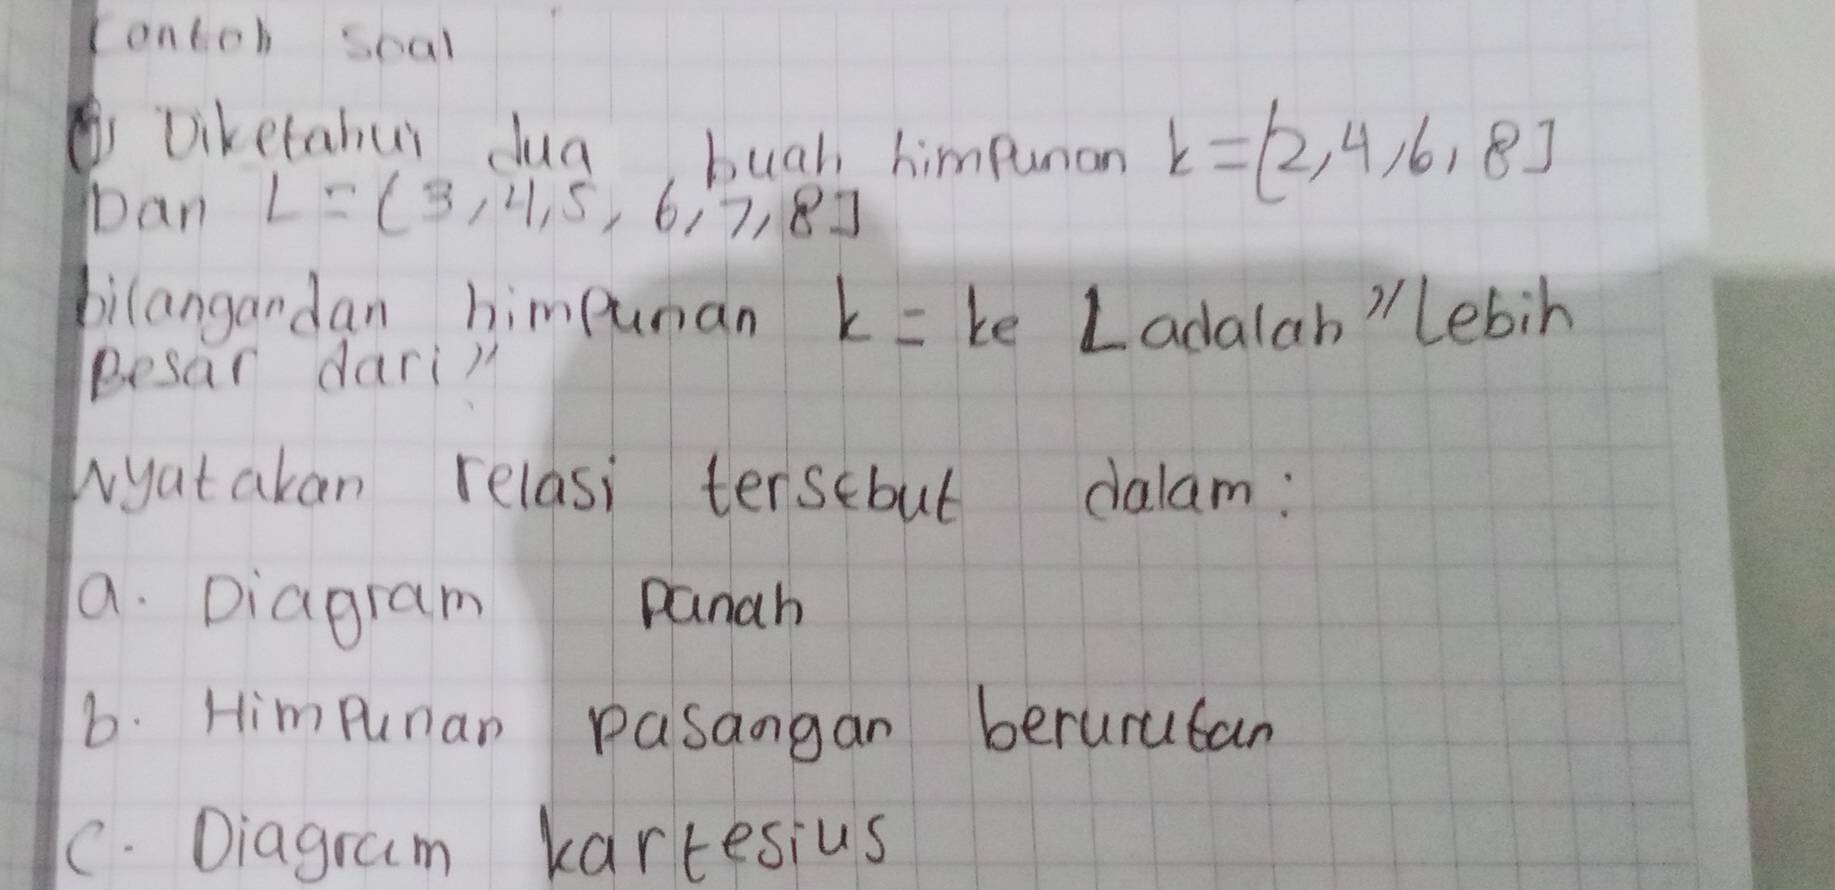 Contoh soal
① Diketahui dua buah himpunan k = [2,4,6,8]
Dan L = (3,4,5,6,7,8]
bilangandan himpunan k = ke L adalah "Lebih
Besar dari"
Nyatakan relasi tersebut dalam:
a. Diagram panah
b. Himpunan pasangan berurutan
c. Diagram kartesius